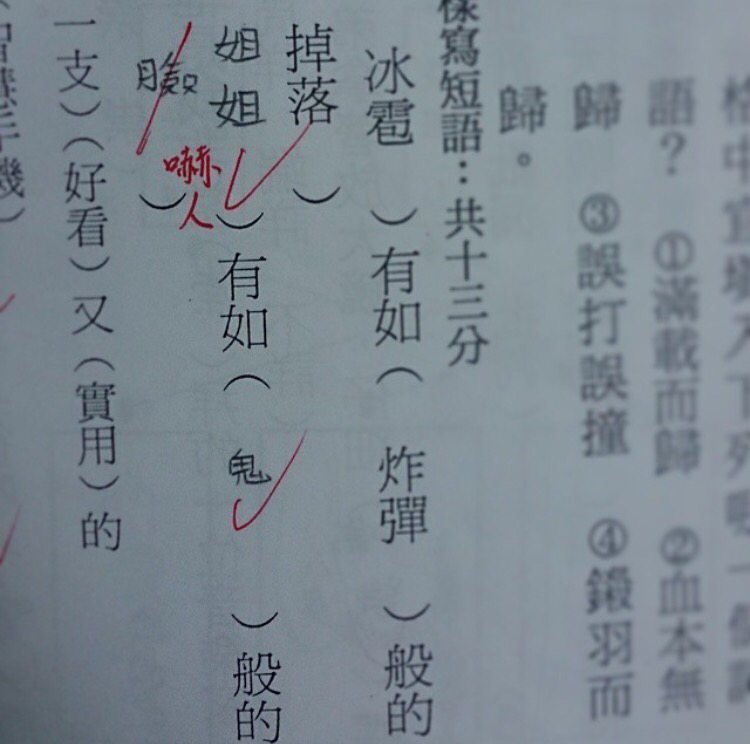 格中宜填入下列哪一個
語？ ①滿載而歸 ②血本無
歸 ③誤打誤撞 ④鎩羽而
歸。
樣寫短語：共十三分
冰雹 ）有如（ 炸彈 ）般的
掉落 ）
姐姐 ）有如（ 鬼 ）般的
臉 ）
嚇人
一支）（好看）又（實用）的
（智慧手機）